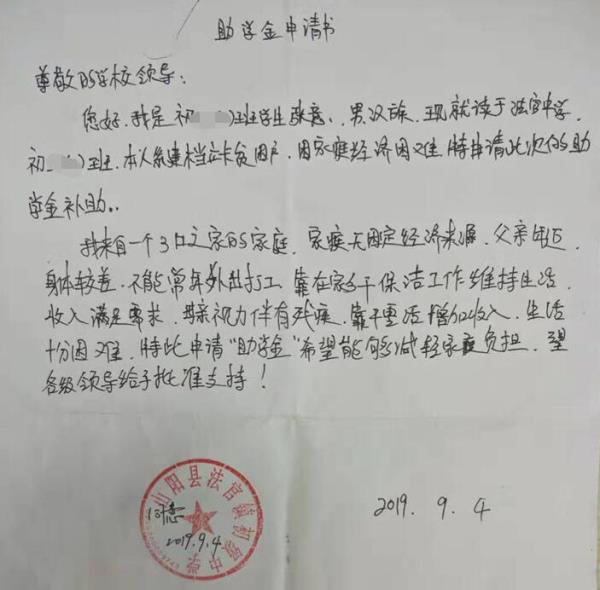 助学金申请书
尊敬的学校领导:
您好,我是初 )班学生张意、男汉族,现就读于法官中学,
初 )班,本人系建档立卡贫困户,因家庭经济困难,特申请此次的助
学金补助..
我来自一个3口之家的家庭,家庭无固定经济来源,父亲年迈
身体较差,不能常年外出打工,靠在家乡干保洁工作维持生活,
收入满足需求,母亲视力伴有残疾,靠干重活增加收入,生活
十分困难,特此申请"助学金"希望能够减轻家庭负担,望
各级领导给予批准支持!
山阳县法官镇初级中学
同意
2019.9.4
2019.9.4